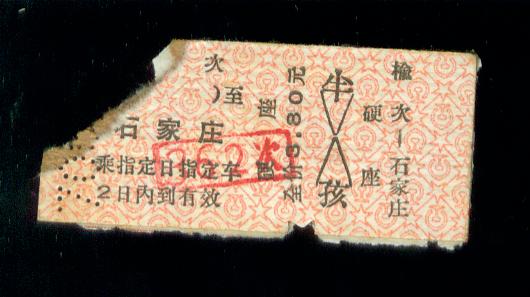 次
)至
石家庄
乘指定日指定车
2日内到有效
硬座
全价3.80元
半
孩
硬座
榆次—石家庄